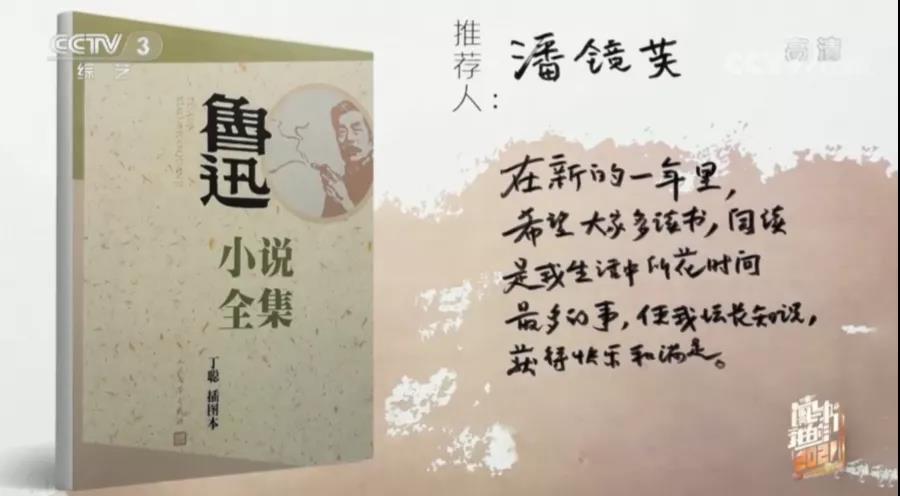 CCTV 3
综艺
高清
推荐人：
潘镜芙
鲁迅
小说
全集
丁聪 插图本
在新的一年里，
希望大家多读书，阅读
是我生活中所花时间
最多的事，使我增长知识，
获得快乐和满足。
读书
2021